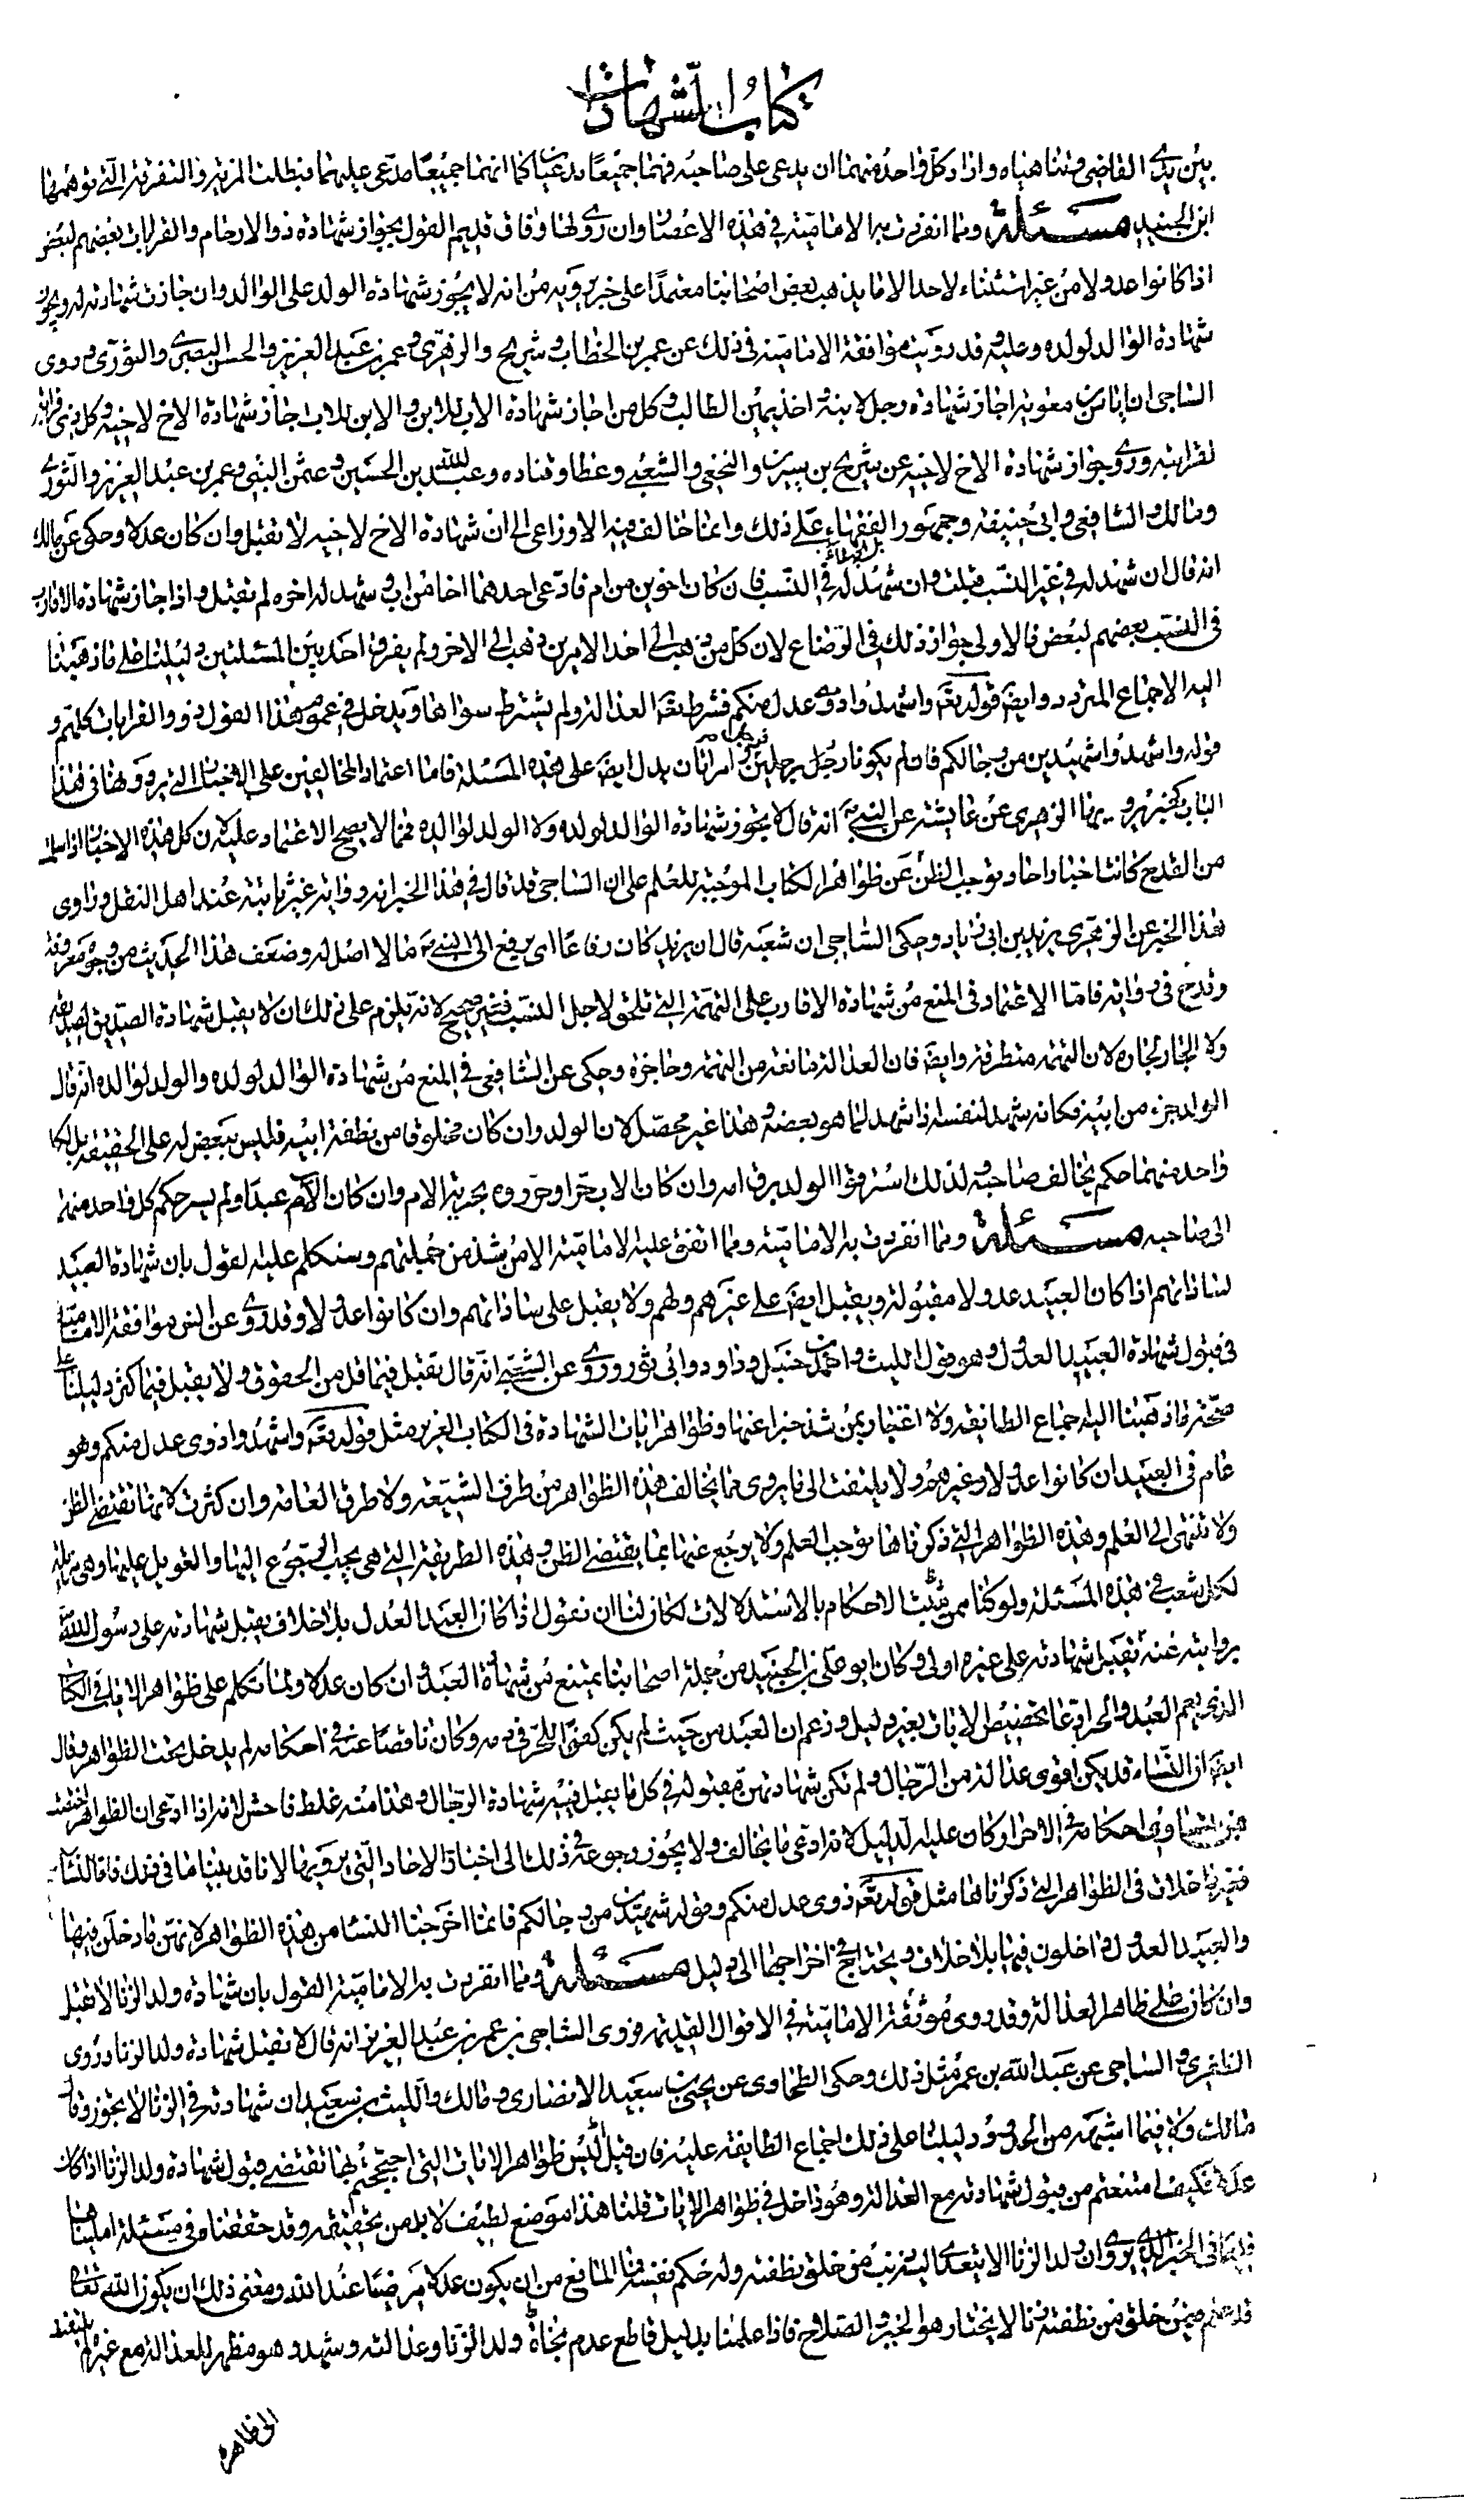 كتاب الشهادات
بين يدي القاضي وتناهياه واراد كل واحد منهما ان يدعى على صاحبه فهما جميعا مدعيان كما انهما جميعا مدعى عليهما فبطلت المزية والتفرقة التي توهمها
ابن الجنيد مسئلة ومما انفردت به الامامية في هذه الاعصار وان روى لها وفاق قديم القول بجواز شهادة ذوى الارحام والقرابات بعضهم لبعض
اذا كانوا عدولا من غير استثناء لاحد الا ما يذهب بعض اصحابنا معتمدا على خبر يرويه من انه لا يجوز شهادة الولد على الوالد وان جازت شهادته له ويجوز
شهادة الوالد لولده وعليه وقد رويت موافقة الامامية في ذلك عن عمر بن الخطاب وشريح والزهرى وعمر بن عبد العزيز والحسن البصرى والثورى وروى
الساجى ان اياس بن معوية اجاز شهادة رجل لابنه واخذ يمين الطالب وكل من اجاز شهادة الاب للابن والابن للاب اجاز شهادة الاخ لاخيه وكل ذى قرابة
لقرابته وروى جواز شهادة الاخ لاخيه عن شريح بن سيرين والنخعى والشعبى وعطا وقتاده وعبد الله بن الحسين وعثمن البتى وعمر بن عبد العزيز والثورى
ومالك والشافعى وابى حنيفة وجمهور الفقهاء على ذلك وانما خالف فيه الاوزاعى الى ان شهادة الاخ لاخيه لا تقبل وان كان عدلا وحكى عن مالك
انه قال ان شهد له في غير النسب قبلت وان شهد له في النسب فان كان اخوين من ام فادعى احدهما اخا من اب وشهد له اخره لم تقبل واذا جاز شهادة الاقارب
فى النسب بعضهم لبعض فالاولى جواز ذلك في الرضاع لان كل من ذهب الى احد الامرين ذهب الى الاخر ولم يفرق احد بين المسئلتين دليلنا على ما ذهبنا
اليه الاجماع المتردد وايض قوله تعه واشهدوا ذوى عدل منكم فشرط تعه العدالة ولم يشترط سواها ويدخل في عموم هذا القول ذوو القرابات كلهم و
قوله واشهدوا شهيدين من رجالكم فان لم يكونا رجلين فرجل وامراتان يدل ايض على هذه المسئلة فاما اعتماد المخالفين على الاخبار التي يروونها في هذا
الباب كخبر يرويه الزهرى عن عايشة عن النبى انه قال لا يجوز شهادة الوالد لولده ولا الولد لوالده فمما لا يصح الاعتماد عليه لان كل هذه الاخبار اذا سلمت
من القدح كانت اخبار احاد توجب الظن عن ظواهر الكتاب الموجبة للعلم على ان الساجى قد قال في هذا الخبر انه رواية غير ثابتة عند اهل النقل وراوى
هذا الخبر عن الزهرى يزيد بن ابى زياد وحكى الساجى ان شعبه قال ان يزيد كان رفاعا اى يرفع الى النبى ما لا اصل له وضعف هذا الحديث من وجوه معروفة
وقدح في رواته فاما الاعتماد في المنع من شهادة الاقارب على التهمة التي تلحق لاجل النسب فغير صحيح لانه يلزم على ذلك ان لا يقبل شهادة الصديق لصديقه
ولا الجار لجاره لان التهمة متطرقة وايض فان العدالة مانعة من التهمة وحاجزة وحكى عن الشافعى في المنع من شهادة الوالد لولده والولد لوالده انه قال
الولد جزء من ابيه فكانه شهد لنفسه اذا شهد لما هو بعضه وهذا غير محصل لان الولد وان كان مخلوقا من نطفة ابيه فليس ببعض له على الحقيقة بل لكل
واحد منهما حكم يخالف صاحبه ولذلك استرقوا الولد برق امه وان كان الاب حرا وحرروه بحرية الام وان كان الاب عبدا ولم يسر حكم كل واحد منهما
الى صاحبه مسئلة ومما انفردت به الامامية ومما اتفق عليه الامامية الا من شذ من جملتهم وسنتكلم عليه القول بان شهادة العبيد
لساداتهم اذا كان العبيد عدولا مقبولة ويقبل ايض على غيرهم ولهم ولا يقبل على ساداتهم وان كانوا عدولا وقد روى عن انس موافقة الامامية
في قبول شهادة العبيد العدول وهو قول الليث واحمد بن حنبل وداود وابى ثور وروى عن الشعبى انه قال تقبل فيما قل من الحقوق ولا يقبل فيما كثر دليلنا على
صحة ما ذهبنا اليه اجماع الطايفة ولا اعتبار بمن شذ خبرا عنها وظواهر ايات الشهادة في الكتاب العزيز مثل قوله تعه واشهدوا ذوى عدل منكم وهو
عام في العبيد ان كانوا عدولا وغيرهم ولا يلتفت الى ما يروى مما يخالف هذه الظواهر من طرق الشيعة ولا طرق العامة وان كثرت لانها تقتضى الظن
ولا تنتهى الى العلم وهذه الظواهر التى ذكرناها توجب العلم ولا يرجع عنها بما يقتضى الظن وهذه الطريقة التى هى يجب الرجوع اليها والتعويل عليها وهى مزيلة
لكل شعب في هذه المسئلة ولو كنا ممن يثبت الاحكام بالاستدلالات لكان لنا ان نقول اذا كان العبد العدل بلا خلاف يقبل شهادته على رسول الله
بروايته عنه فقبل شهادته على غيره اولى وكان ابو على بن الجنيد من جملة اصحابنا يمتنع من شهادة العبد وان كان عدلا ولما تكلم على ظواهر الايات في الكتاب
التى تعم العبد والحر ادعا تخصيص الايات بغير دليل وزعم ان العبد من حيث لم يكن كفوا للحر في دمه وكان ناقصا عنه في احكامه لم يدخل تحت الظواهر وقال
ايض ان النساء قد يكن اقوى عدالة من الرجال ولم تكن شهادتهن مقبولة في كل ما يقبل فيه شهادة الرجال وهذا منه غلط فاحش لانه اذا ادعى ان الظواهر اختصت
بمن تتساوى احكامه في الاحرار كان عليه الدليل لانه ادعى ما يخالف ولا يجوز رجوعه في ذلك الى اخبار الاحاد التي يرويها لانا قد بينا ما في ذلك فاما النساء
فغير داخلات في الظواهر التى ذكرناها مثل قوله تعه ذوى عدل منكم وقوله شهيدين من رجالكم فانما اخرجنا النسا من هذه الظواهر لانهن ما دخلن فيها
والعبيد العدول داخلون فيها بلا خلاف ويحتاج في اخراجها الى دليل مسئلة ومما انفردت به الامامية القول بان شهادة ولد الزنا لا تقبل
وان كان على ظاهر العدالة وقد روى موافقة الامامية في الاقوال القديمة فروى الساجى بن عمر بن عبد العزيز انه قال لا تقبل شهادة ولد الزنا وروى
الساجى عن عبد الله بن عمر مثل ذلك وحكى الطحاوى عن يحيى بن سعيد الانصارى ومالك والليث بن سعيد ان شهادته في الزنا لا تجوز وقال
مالك ولا فيما اشبهه من الحدود دليلنا على ذلك اجماع الطايفة عليه فان قيل اليس ظواهر الايات التى احتججتم بها تقتضى قبول شهادة ولد الزنا اذا كان
عدلا فكيف امتنعتم من قبول شهادته مع العدالة وهو داخل في ظواهر الايات قلنا هذا موضع لطيف لا بد من تحقيقه وقد حققناه في مسئلة امليناها
قديما في الخبر الذى يروى ان ولد الزنا لا يتعدى الستر من خلق نطفته وله حكم نفسه من المانع من ان يكون عدلا مرضيا عند الله ومعنى ذلك ان يكون الله تعالى
قد علم فيمن خلق من نطفة زنا لا يختار هو الخير والصلاح فاذا علمنا بدليل قاطع عدم نجاة ولد الزنا وعدالته وشهد وهو مظهر للعدالة مع غيره لم يلتفت
الى ظاهره